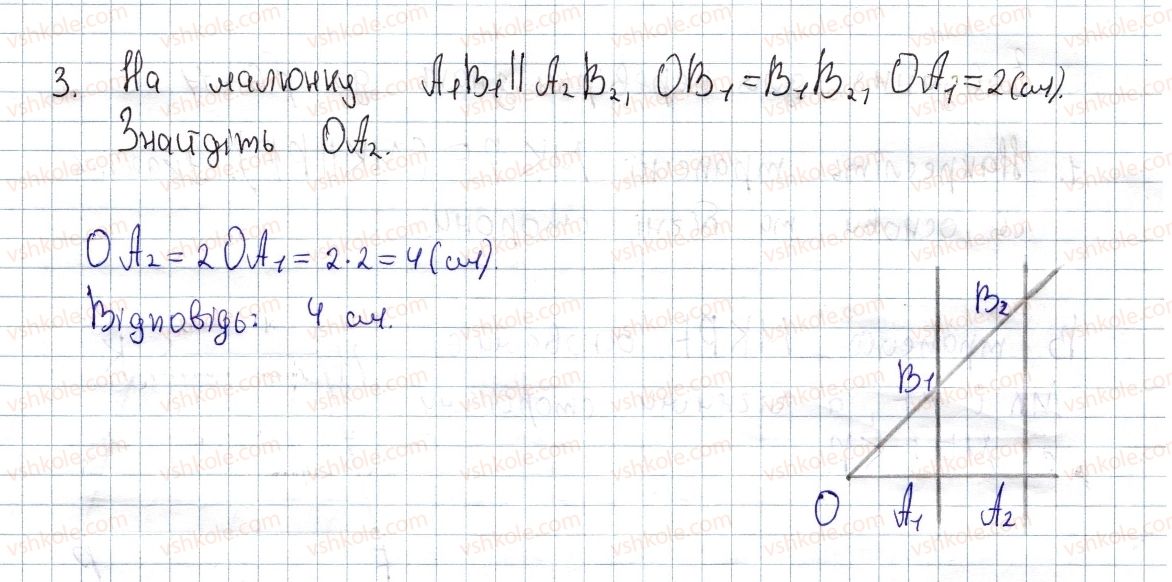 3. На малюнку A₁B₁ || A₂B₂, OB₁ = B₁B₂, OA₁ = 2 (см).
Знайдіть OA₂.
OA₂ = 2 OA₁ = 2·2 = 4 (см).
Відповідь: 4 см.
B₂
B₁
O A₁ A₂
vshkole.com